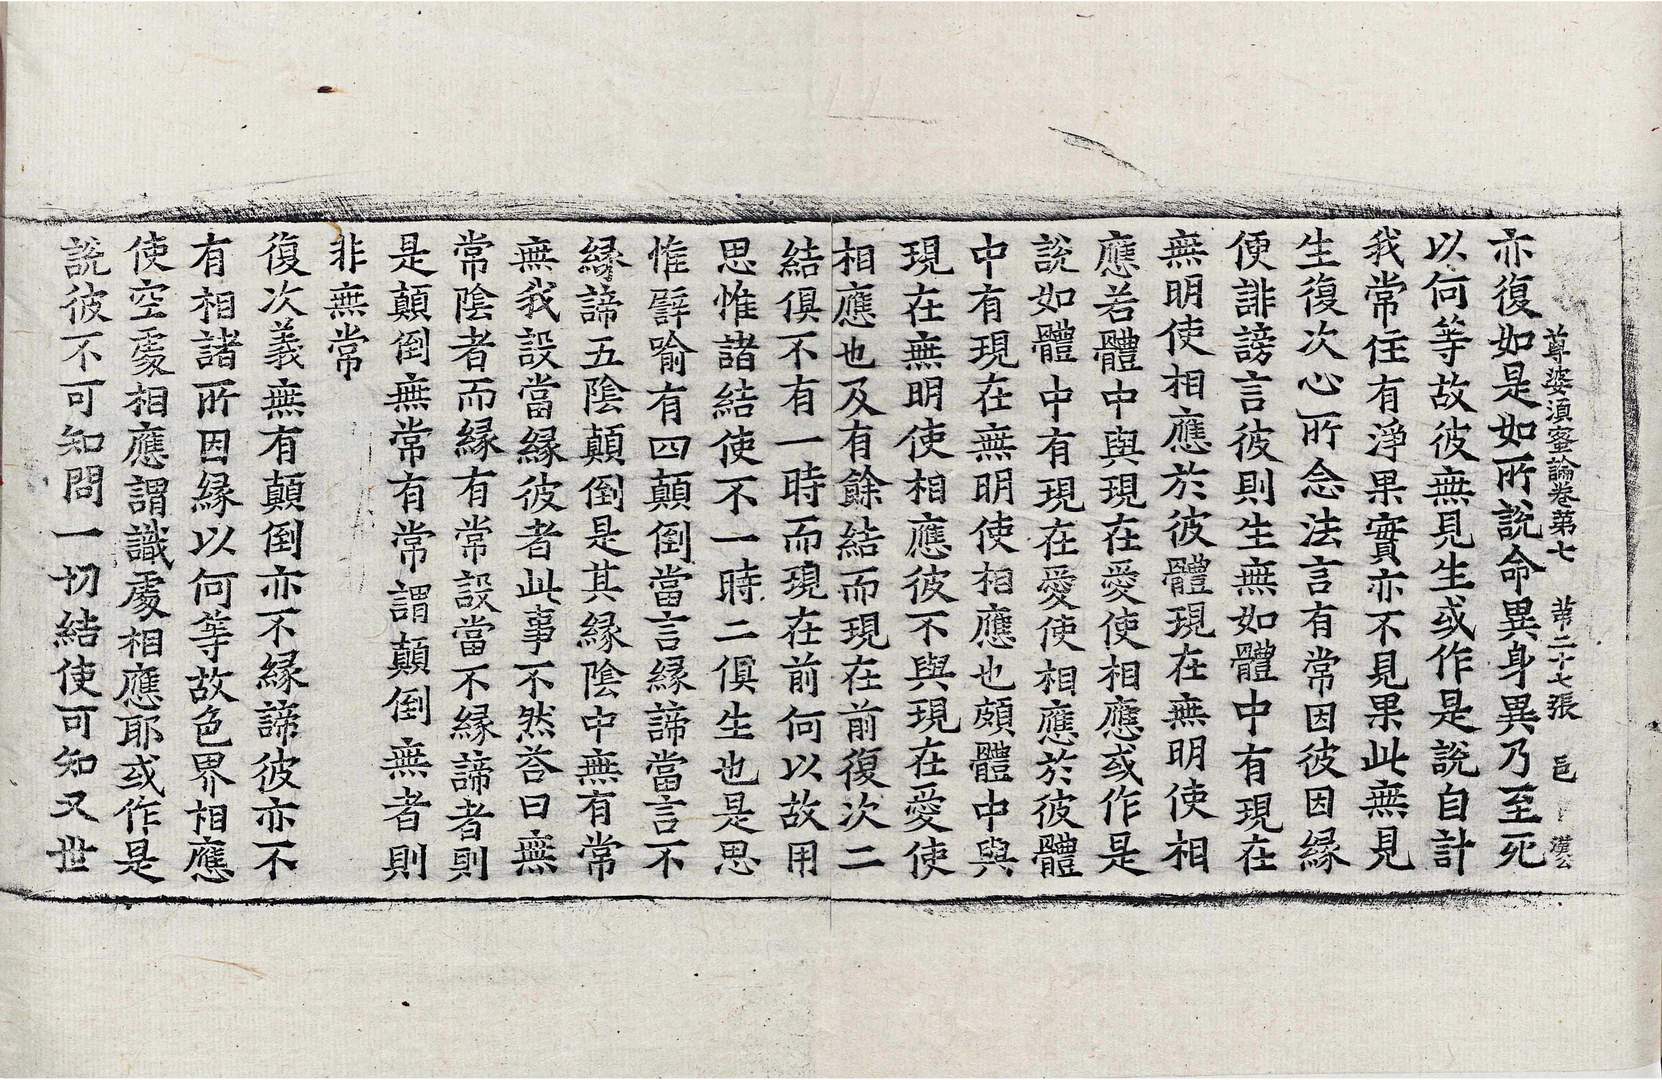 尊婆須蜜論卷第七　第二十七張　邑　漢公
亦復如是如所說命異身異乃至死
以何等故彼無見生或作是說自計
我常住有淨果實亦不見果此無見
生復次心所念法言有常因彼因緣
便誹謗言彼則生無如體中有現在
無明使相應於彼體現在無明使相
應若體中與現在愛使相應或作是
說如體中有現在愛使相應於彼體
中有現在無明使相應也頗體中與
現在無明使相應彼不與現在愛使
相應也及有餘結而現在前復次二
結俱不有一時而現在前何以故用
思惟諸結使不一時二俱生也是思
惟譬喻有四顛倒當言緣諦當言不
緣諦五陰顛倒是其緣陰中無有常
無我設當緣彼者此事不然荅曰無
常陰者而緣有常設當不緣諦者則
是顛倒無常有常謂顛倒無者則
非無常
復次義無有顛倒亦不緣諦彼亦不
有相諸所因緣以何等故色界相應
使空處相應謂識處相應耶或作是
說彼不可知問一切結使可知又世